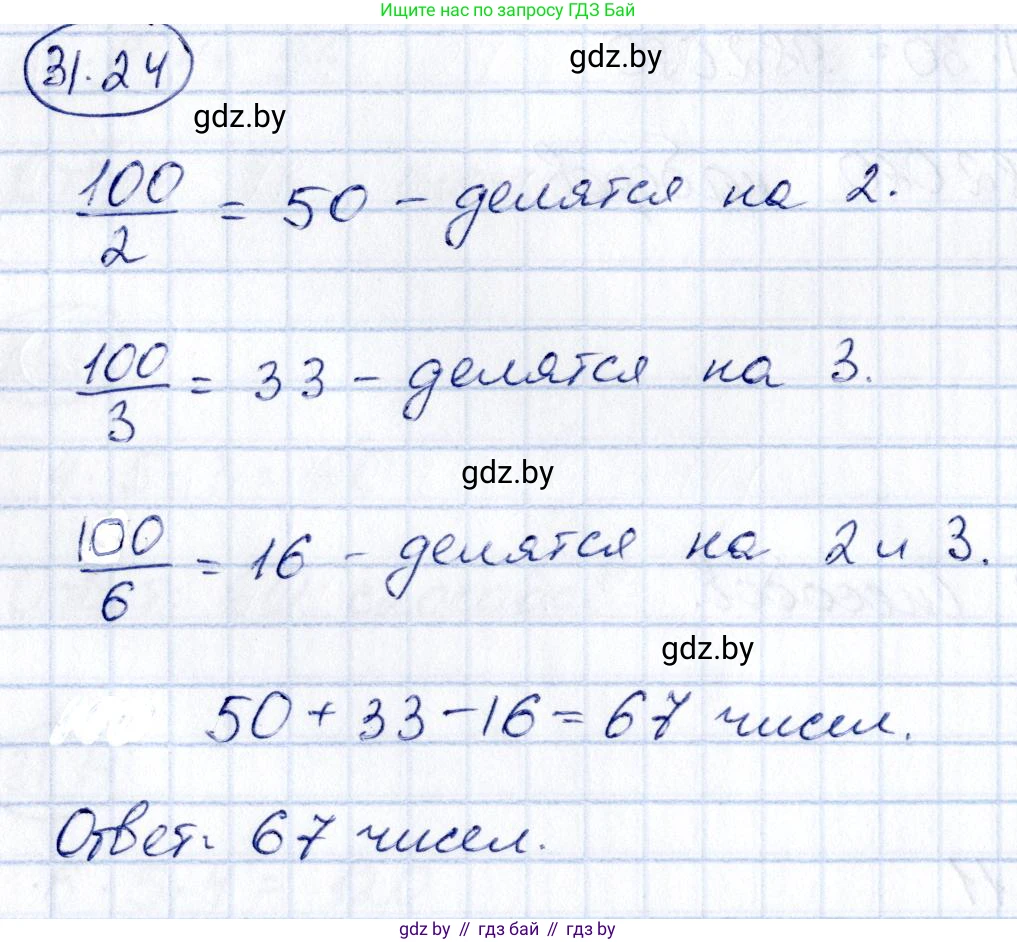 Ищите нас по запросу ГДЗ Бай
31.24
gdz.by
gdz.by
100/2 = 50 - делятся на 2.
100/3 = 33 - делятся на 3.
gdz.by
100/6 = 16 - делятся на 2 и 3.
gdz.by
50 + 33 - 16 = 67 чисел.
Ответ: 67 чисел.
gdz.by // гдз бай // гдз by